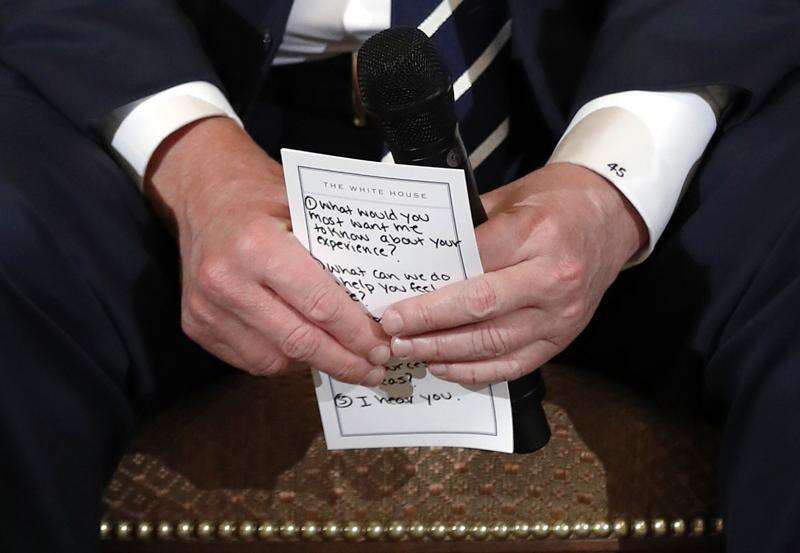 45
THE WHITE HOUSE
① What would you
most want me
to know about your
experience?
What can we do
help you feel
⑤ I hear you.